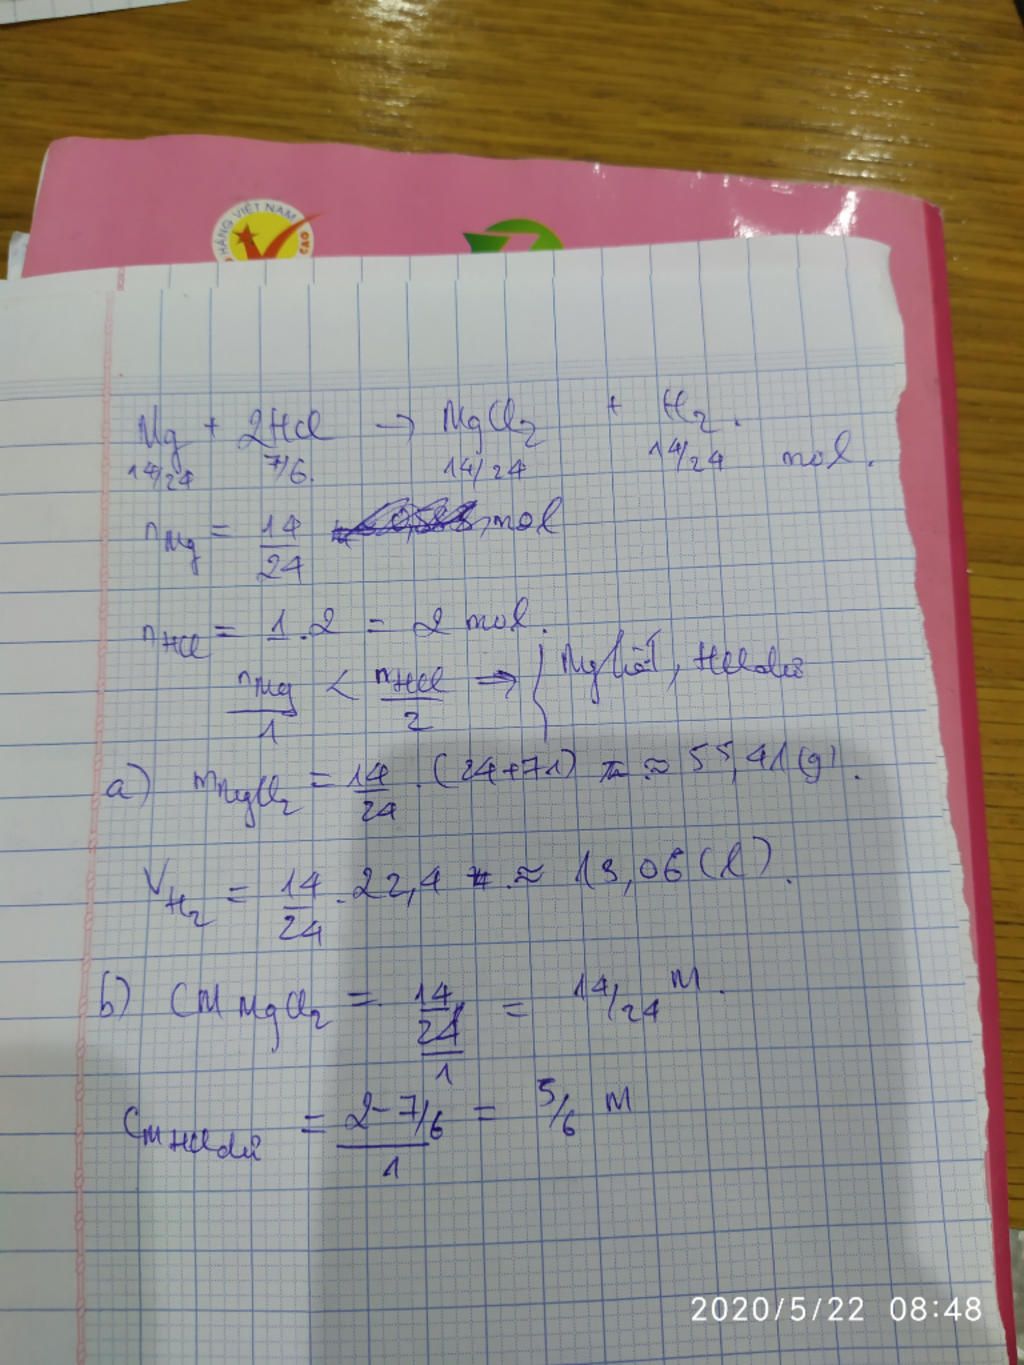 HÀNG VIỆT NAM
CAO
Mg + 2HCl → MgCl₂ + H₂.
14/24 7/6. 14/24 14/24 mol.
nMg = 14/24 mol
nHCl = 1.2 = 2 mol.
nMg/1 < nHCl/2 ⇒ { Mg hết, HCl dư
a) mMgCl₂ = 14/24 . (24+71) ≈ 55,41 (g).
VH₂ = 14/24 . 22,4 ≈ 13,06 (l).
b) CM MgCl₂ = 14/24/1 = 14/24 M.
CM HCl dư = 2-7/6/1 = 5/6 M
2020/5/22 08:48